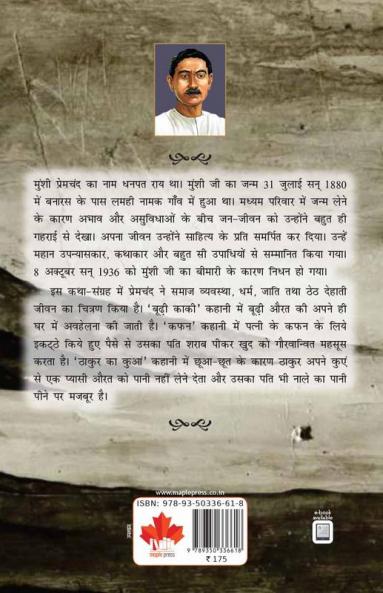 मुंशी प्रेमचंद का नाम धनपत राय था। मुंशी जी का जन्म 31 जुलाई सन् 1880
में बनारस के पास लमही नामक गाँव में हुआ था। मध्यम परिवार में जन्म लेने
के कारण अभाव और असुविधाओं के बीच जन-जीवन को उन्होंने बहुत ही
गहराई से देखा। अपना जीवन उन्होंने साहित्य के प्रति समर्पित कर दिया। उन्हें
महान उपन्यासकार, कथाकार और बहुत सी उपाधियों से सम्मानित किया गया।
8 अक्टूबर सन् 1936 को मुंशी जी का बीमारी के कारण निधन हो गया।
इस कथा-संग्रह में प्रेमचंद ने समाज व्यवस्था, धर्म, जाति तथा ठेठ देहाती
जीवन का चित्रण किया है। 'बूढ़ी काकी' कहानी में बूढ़ी औरत की अपने ही
घर में अवहेलना की जाती है। 'कफन' कहानी में पत्नी के कफन के लिये
इकट्ठे किये हुए पैसे से उसका पति शराब पीकर खुद को गौरवान्वित महसूस
करता है। 'ठाकुर का कुआं' कहानी में छूआ-छूत के कारण ठाकुर अपने कुएं
से एक प्यासी औरत को पानी नहीं लेने देता और उसका पति भी नाले का पानी
पीने पर मजबूर है।
www.maplepress.co.in
ISBN: 978-93-50336-61-8
maple press
9 789350 336618
₹ 175
e-book
available